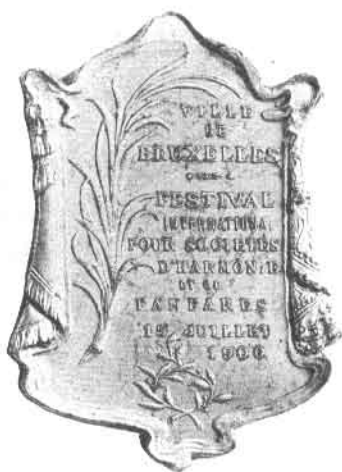 VILLE
DE
BRUXELLES
FESTIVAL
INTERNATIONAL
POUR SOCIÉTÉS
D'HARMONIE
ET DE
FANFARES
1ER JUILLET